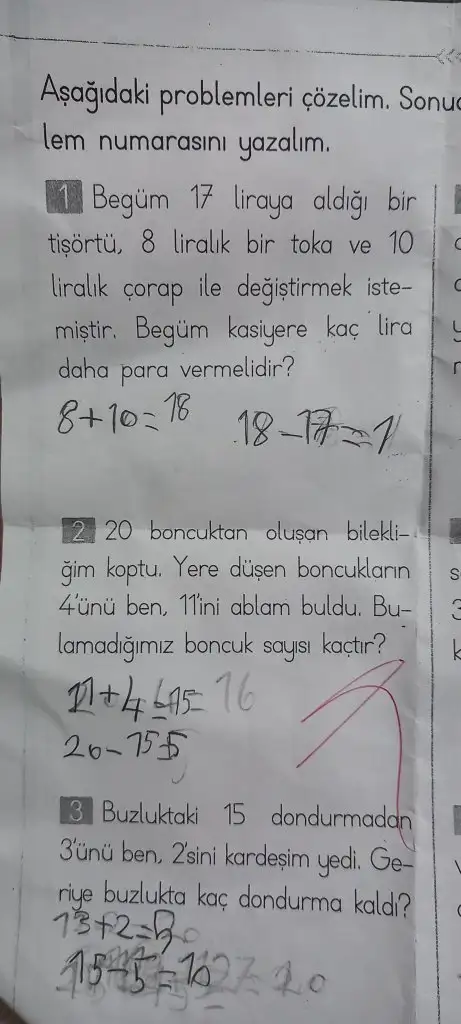 Aşağıdaki problemleri çözelim. Sonuc
lem numarasını yazalım.
1 Begüm 17 liraya aldığı bir
tişörtü, 8 liralık bir toka ve 10
liralık çorap ile değiştirmek iste-
miştir. Begüm kasiyere kaç lira
daha para vermelidir?
8+10=18 18-17=1
2 20 boncuktan oluşan bilekli-
ğim koptu. Yere düşen boncukların
4'ünü ben, 11'ini ablam buldu. Bu-
lamadığımız boncuk sayısı kaçtır?
11+4=15 16
20-15=5
3 Buzluktaki 15 dondurmadan
3'ünü ben, 2'sini kardeşim yedi. Ge-
riye buzlukta kaç dondurma kaldı?
13+2=
15-5=10